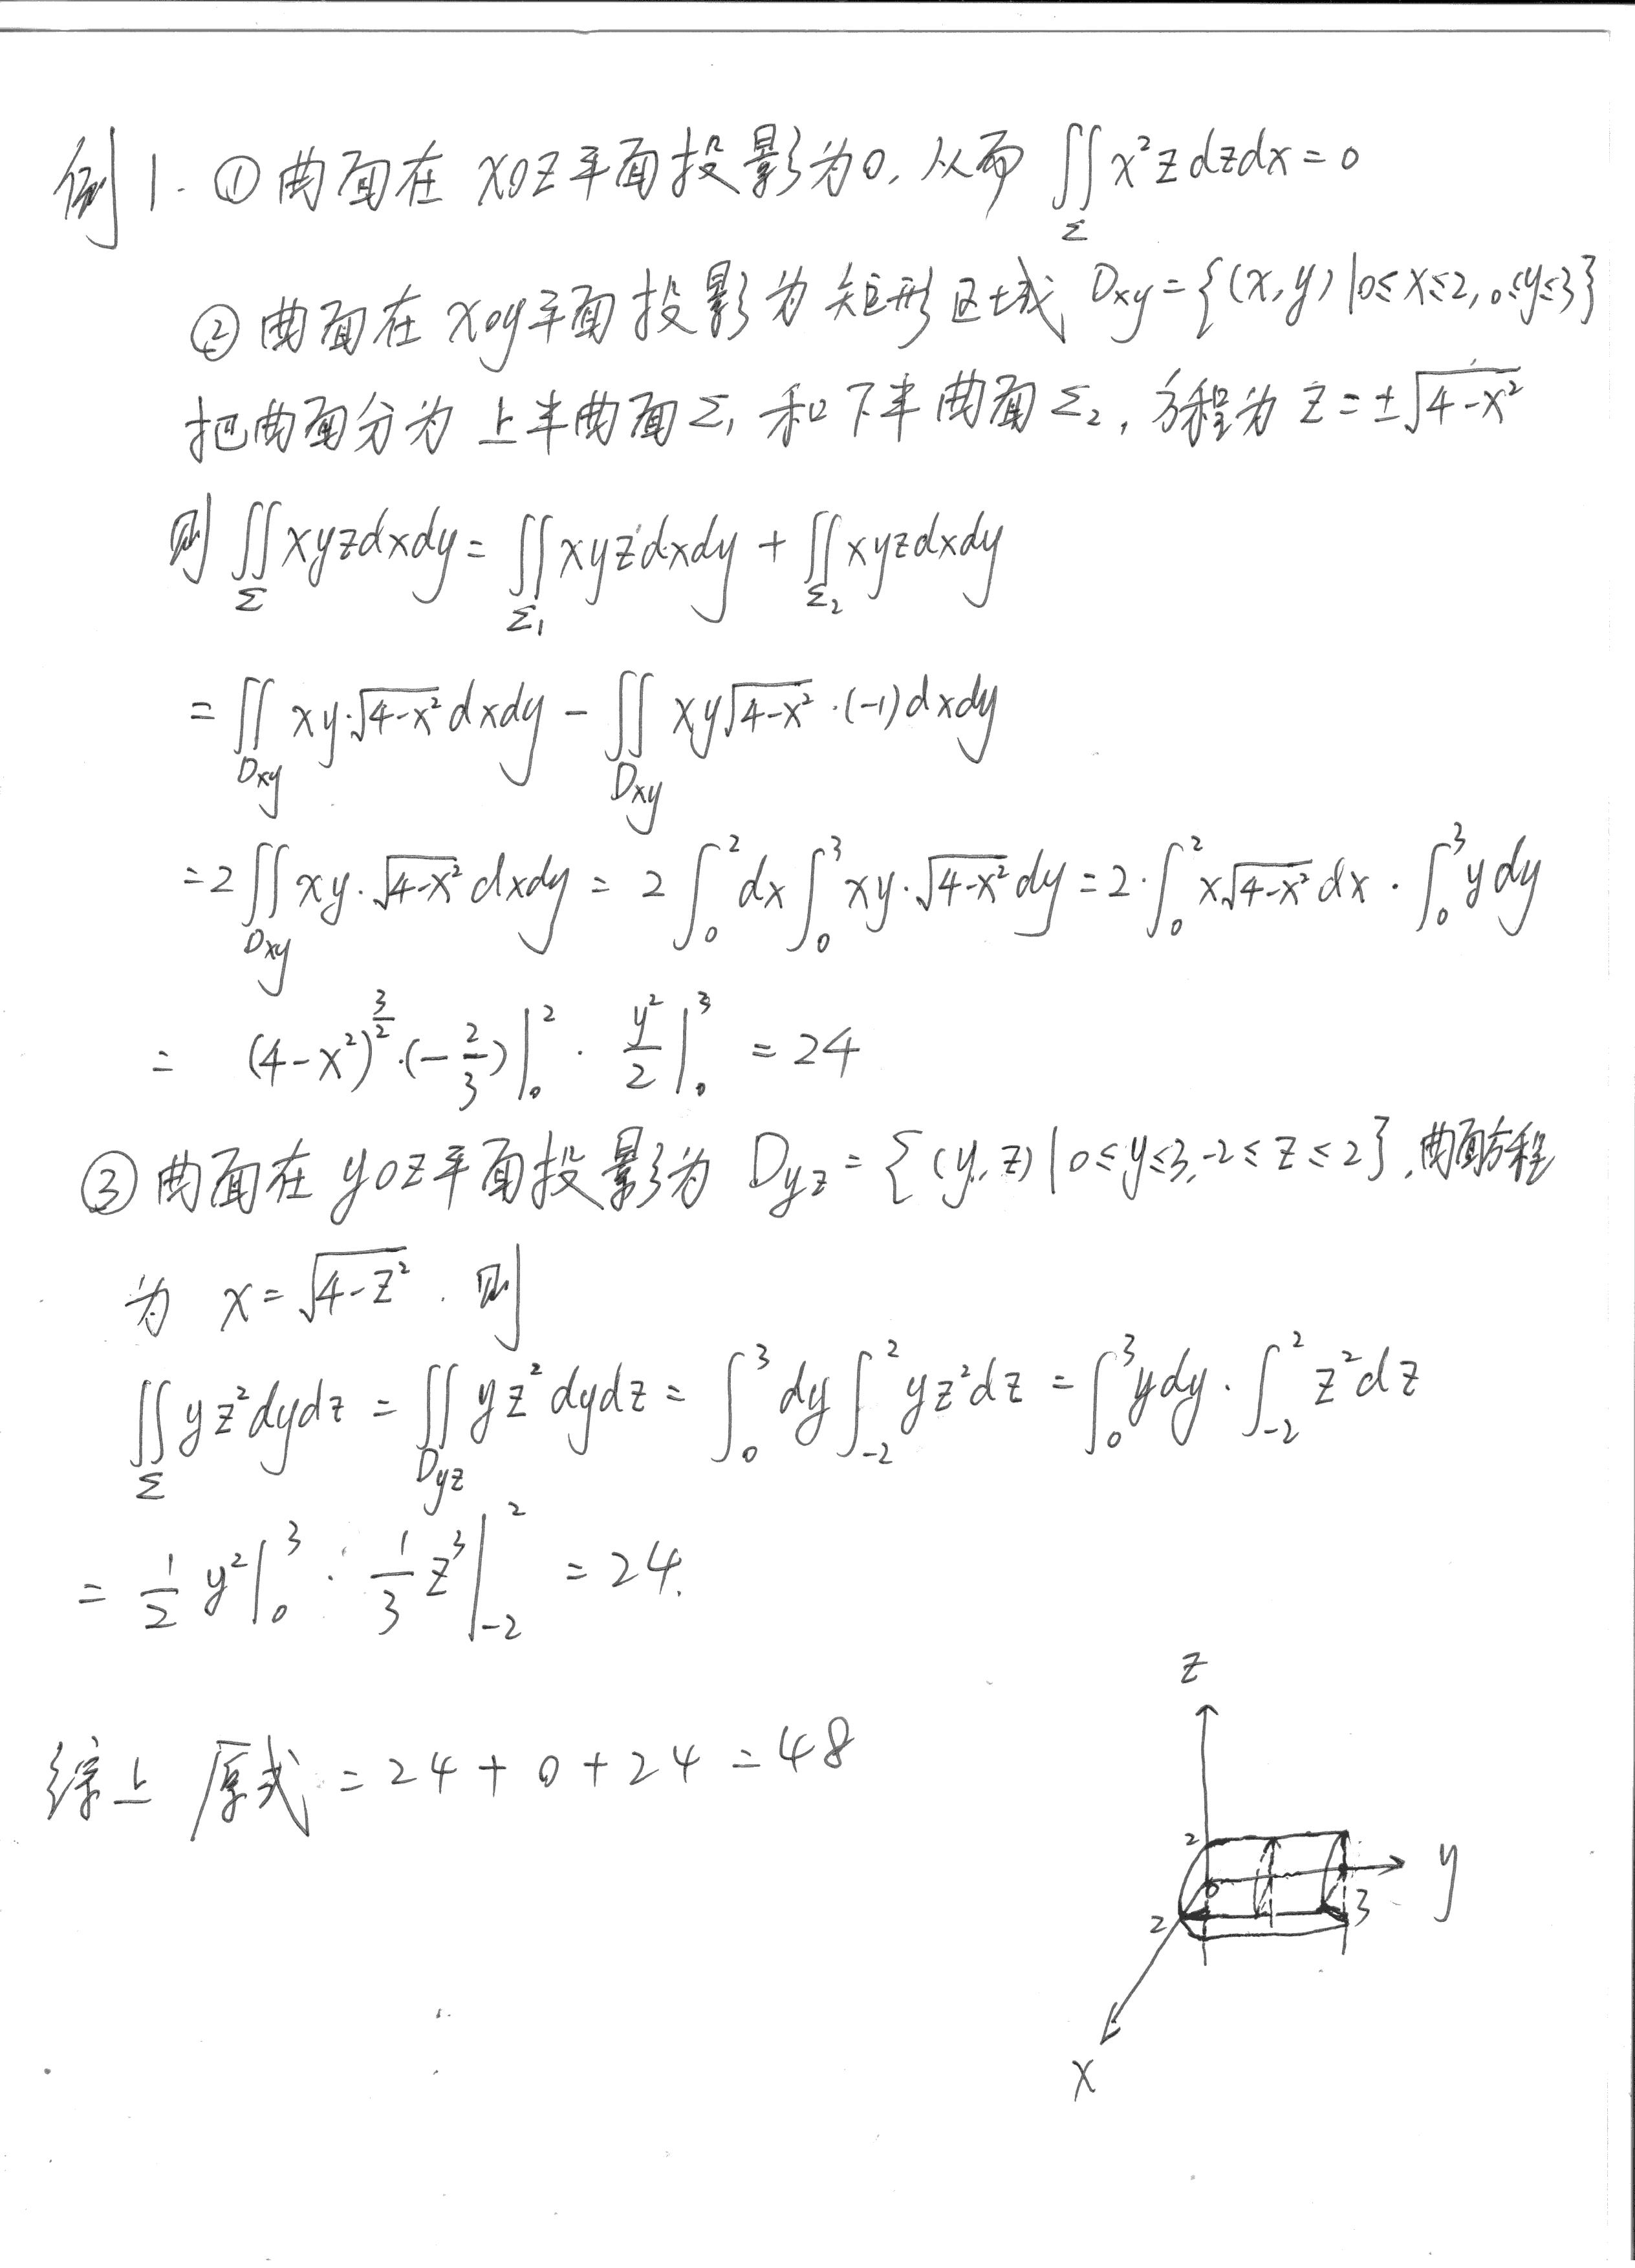 例1. ① 曲面在 xoz平面投影为0. 从而 ∬_Σ x²z dzdx = 0
② 曲面在 xoy平面投影为矩形区域 D_xy = {(x, y) | 0≤x≤2, 0≤y≤3}
把曲面分为上半曲面Σ₁ 和下半曲面Σ₂, 方程为 z = ±√(4-x²)
则 ∬_Σ xyzdxdy = ∬_Σ₁ xyzdxdy + ∬_Σ₂ xyzdxdy
= ∬_Dxy xy·√(4-x²) dxdy - ∬_Dxy xy√(4-x²)·(-1)dxdy
= 2∬_Dxy xy·√(4-x²) dxdy = 2∫₀² dx ∫₀³ xy·√(4-x²) dy = 2·∫₀² x√(4-x²) dx · ∫₀³ ydy
= (4-x²)^(3/2)·(-2/3)|₀² · y²/2|₀³ = 24
③ 曲面在 yoz平面投影为 D_yz = {(y, z) | 0≤y≤3, -2≤z≤2}, 曲面方程
为 x = √(4-z²). 则
∬_Σ yz²dydz = ∬_Dyz yz²dydz = ∫₀³ dy ∫₋₂² yz²dz = ∫₀³ ydy · ∫₋₂² z²dz
= 1/2 y²|₀³ · 1/3 z³|₋₂² = 24.
综上 原式 = 24 + 0 + 24 = 48
z
2
0
y
2
3
x